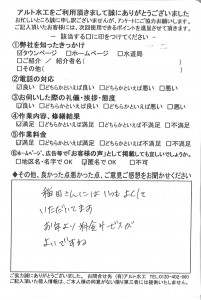 アルト水工をご利用頂きまして誠にありがとうございました
お忙しいところ誠に申し訳ございませんが、アンケートにご協力お願いします。
ご記入頂いたお客様には、次回使用できるポイントを進呈させて頂きます。
― 該当する□に印をつけてください ―
①弊社を知ったきっかけ
☑タウンページ □ホームページ □水道局
□ご紹介 / 紹介者名( )
□その他( )
②電話の対応
☑良い □どちらかといえば良い □どちらかといえば悪い □悪い
③お伺いした際の礼儀・挨拶・態度
☑良い □どちらかといえば良い □どちらかといえば悪い □悪い
④作業内容、修繕結果
☑満足 □どちらかといえば満足 □どちらかといえば不満足 □不満足
⑤作業料金
☑満足 □どちらかといえば満足 □どちらかといえば不満足 □不満足
⑥ホームページ、広告等で「お客様の声」として掲載しても宜しいでしょうか。
□地区名・名字でOK ☑匿名でOK □不可
◆その他、良かった点悪かった点、ご意見ご感想をお聞かせください
稲田さんにはいつもよくして
いただいてます
お年より料金サービスが
よいですね
ご協力誠にありがとうございました。 お問合せ先 (有)アルト水工 0120-402-060
ご記入頂いた個人情報は、ご本人様の同意がない限り第三者には提供いたしません。